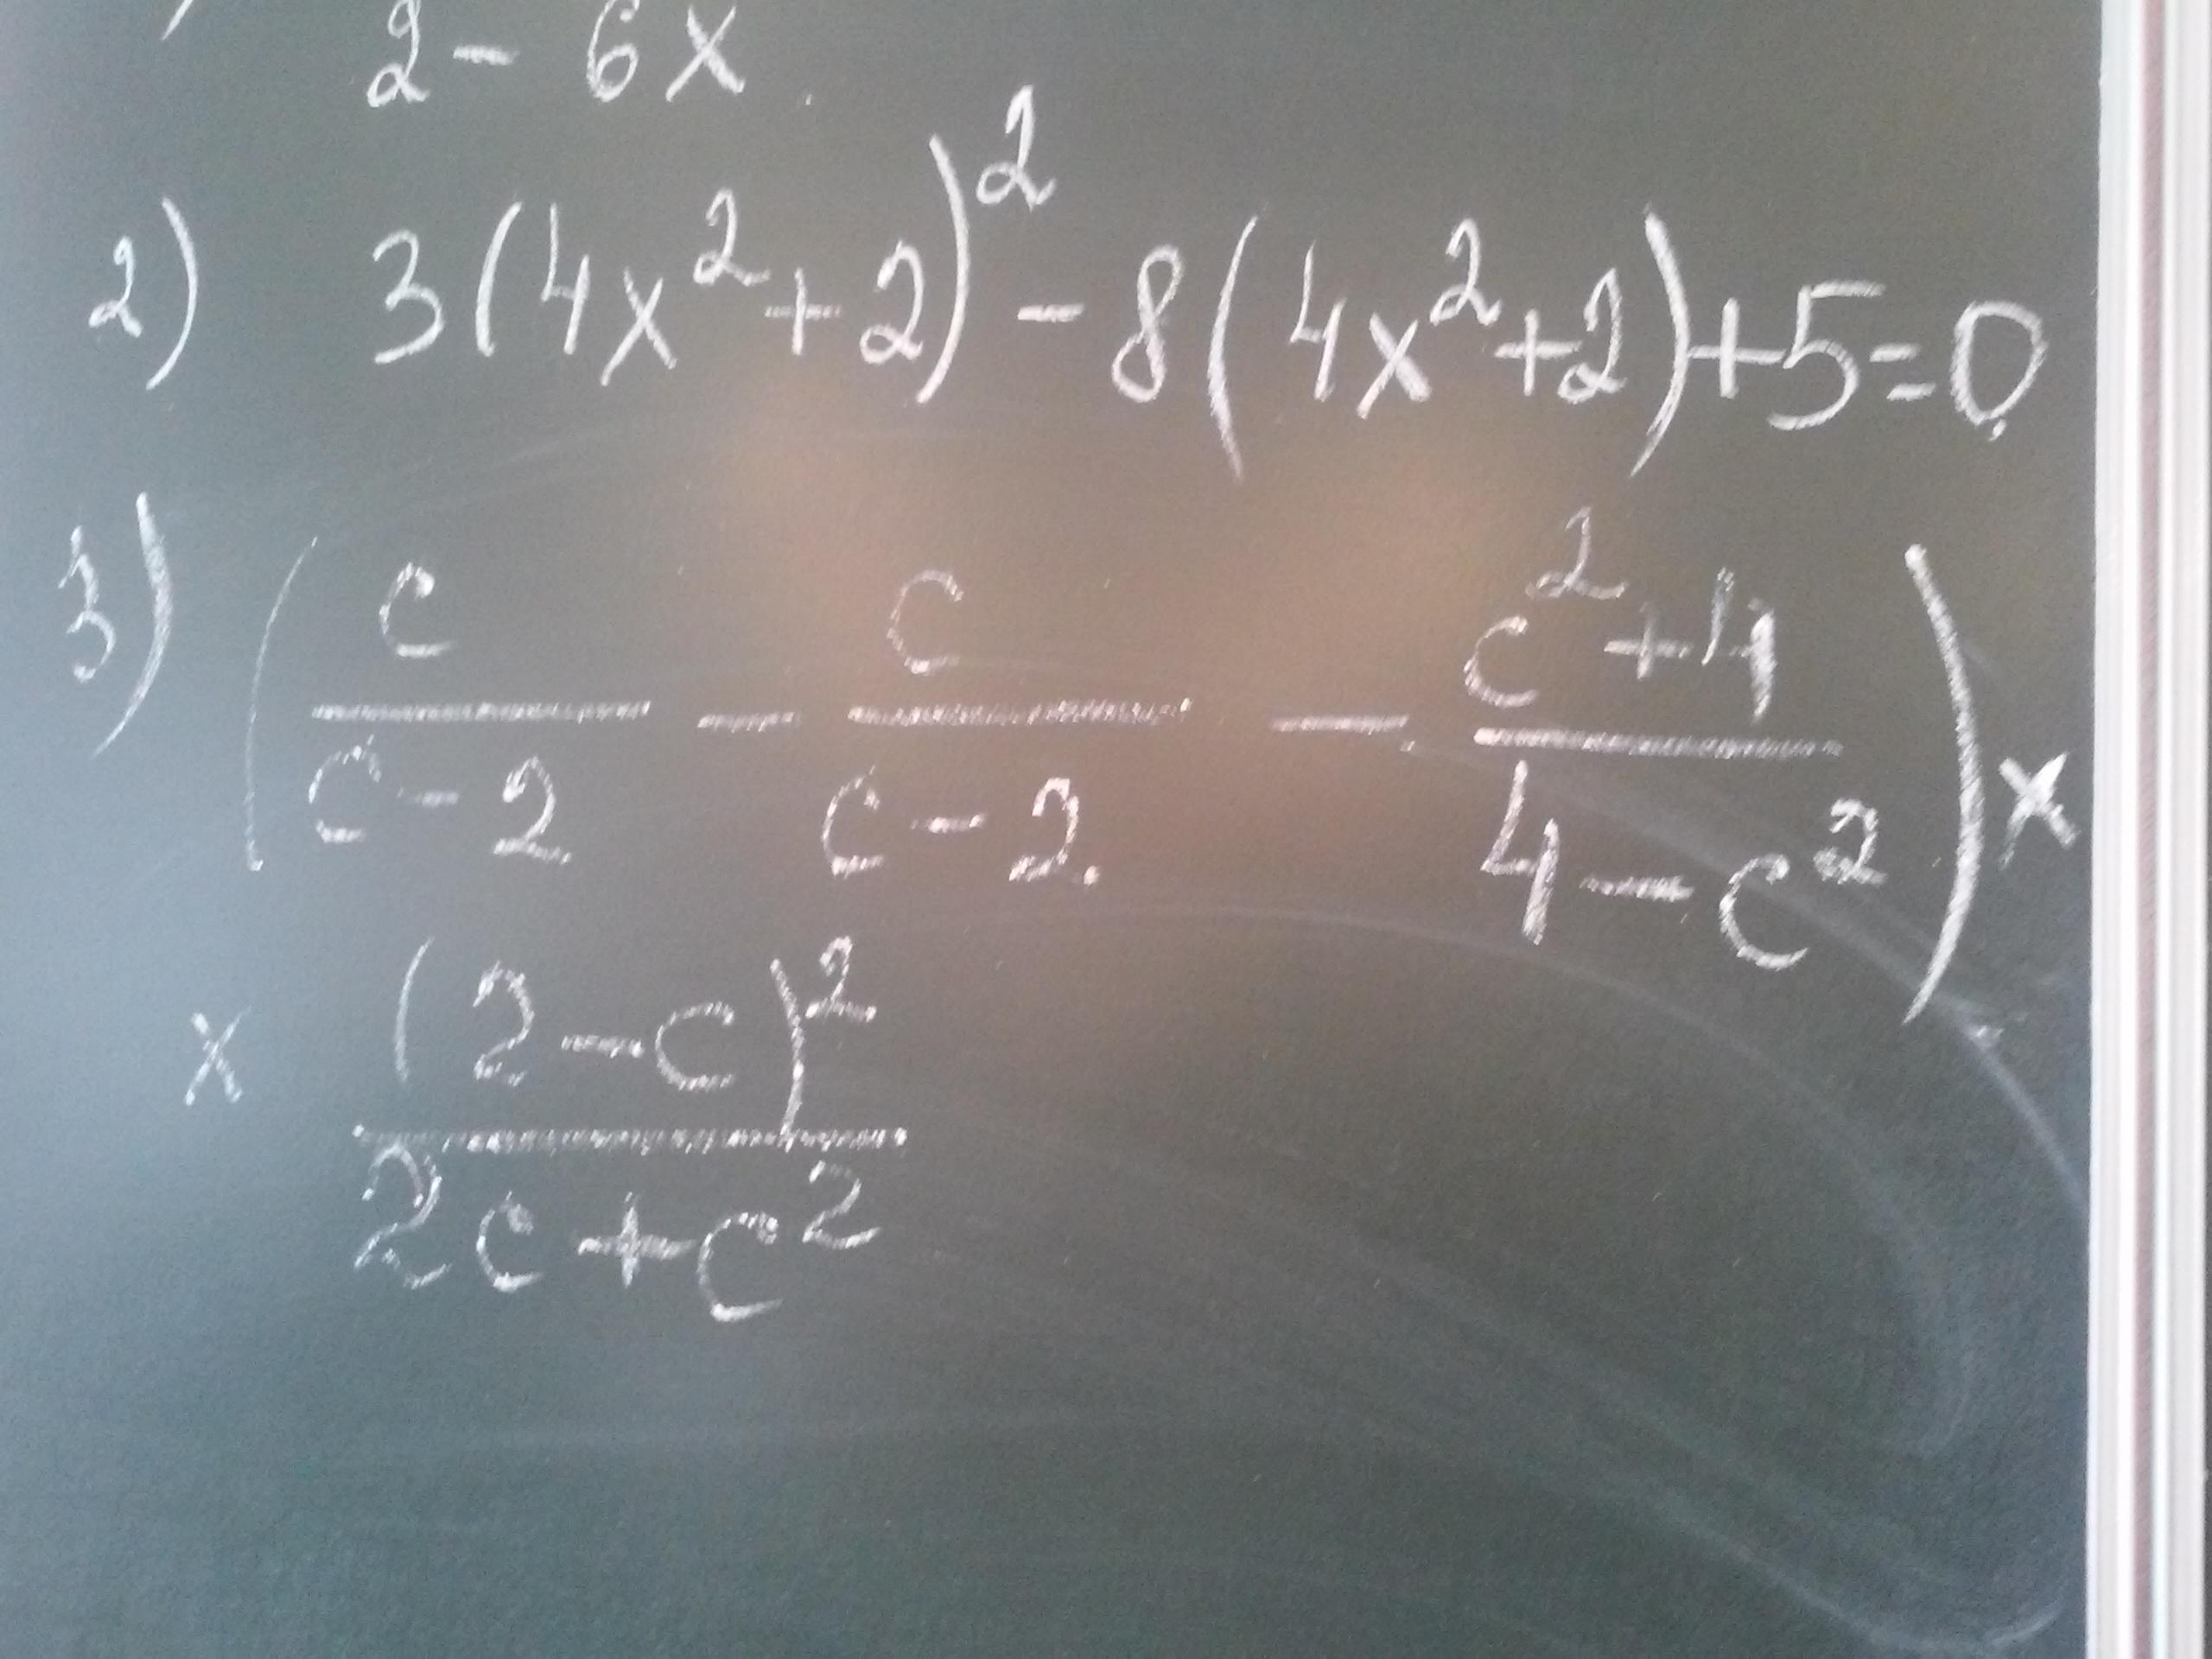 2 - 6x
2) 3(4x²+2)² - 8(4x²+2)+5=0
3) (c/(c-2) - c/(c-2) - (c²+4)/(4-c²)) x
x (2-c)²/(2c+c²)